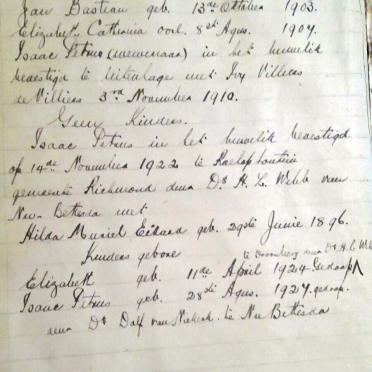 Jan Bastian geb. 13de Oktober 1903.
Elizabeth Catharina oorl. 8ste Agus. 1907.
Isaac Petrus (wewenaar) in het huwelik
bevestigd te Uitenhage met Ivy Villiers
de Villiers 3rd November 1910.
Geen Kinders.
Isaac Petrus in het huwelik bevestigd
op 14de November 1922 te
gemeente Richmond deur Ds H. L. Webb van
Nu-Bethesda met
Hilda Muriel geb. 29ste Junie 1896.
Kinders gebore
te deur Ds H. L. Webb
Elizabeth geb. 11de April 1924 Gedoop
Isaac Petrus geb. 28ste Agus. 1927. gedoop
deur Ds van Niekerk te Nu Bethesda